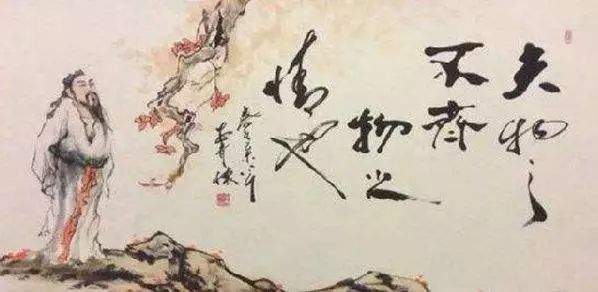 夫物之
不齊
物之
情也